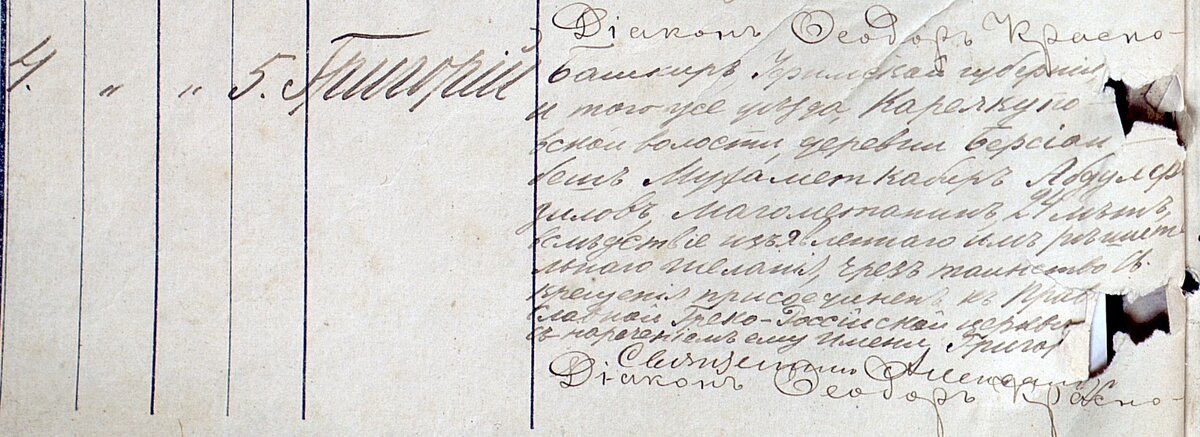 Діаконъ Ѳеодоръ Красно-
4. " " 5. Григорій
Башкиръ Уфимской губерніи
и того же уѣзда, Каряк
вской волости, деревни Берсіан
бешъ Мухаметкабиръ Абдулф
зиловъ, магометанинъ 24 лѣтъ,
вслѣдствіе изъявленнаго имъ рѣшите
льнаго желанія, чрезъ таинство Св.
крещенія присоединенъ къ Прав
славной Греко-Россійской церкви
съ нареченіемъ ему имени Григор
Священникъ Александръ
Діаконъ Ѳеодоръ Красно-